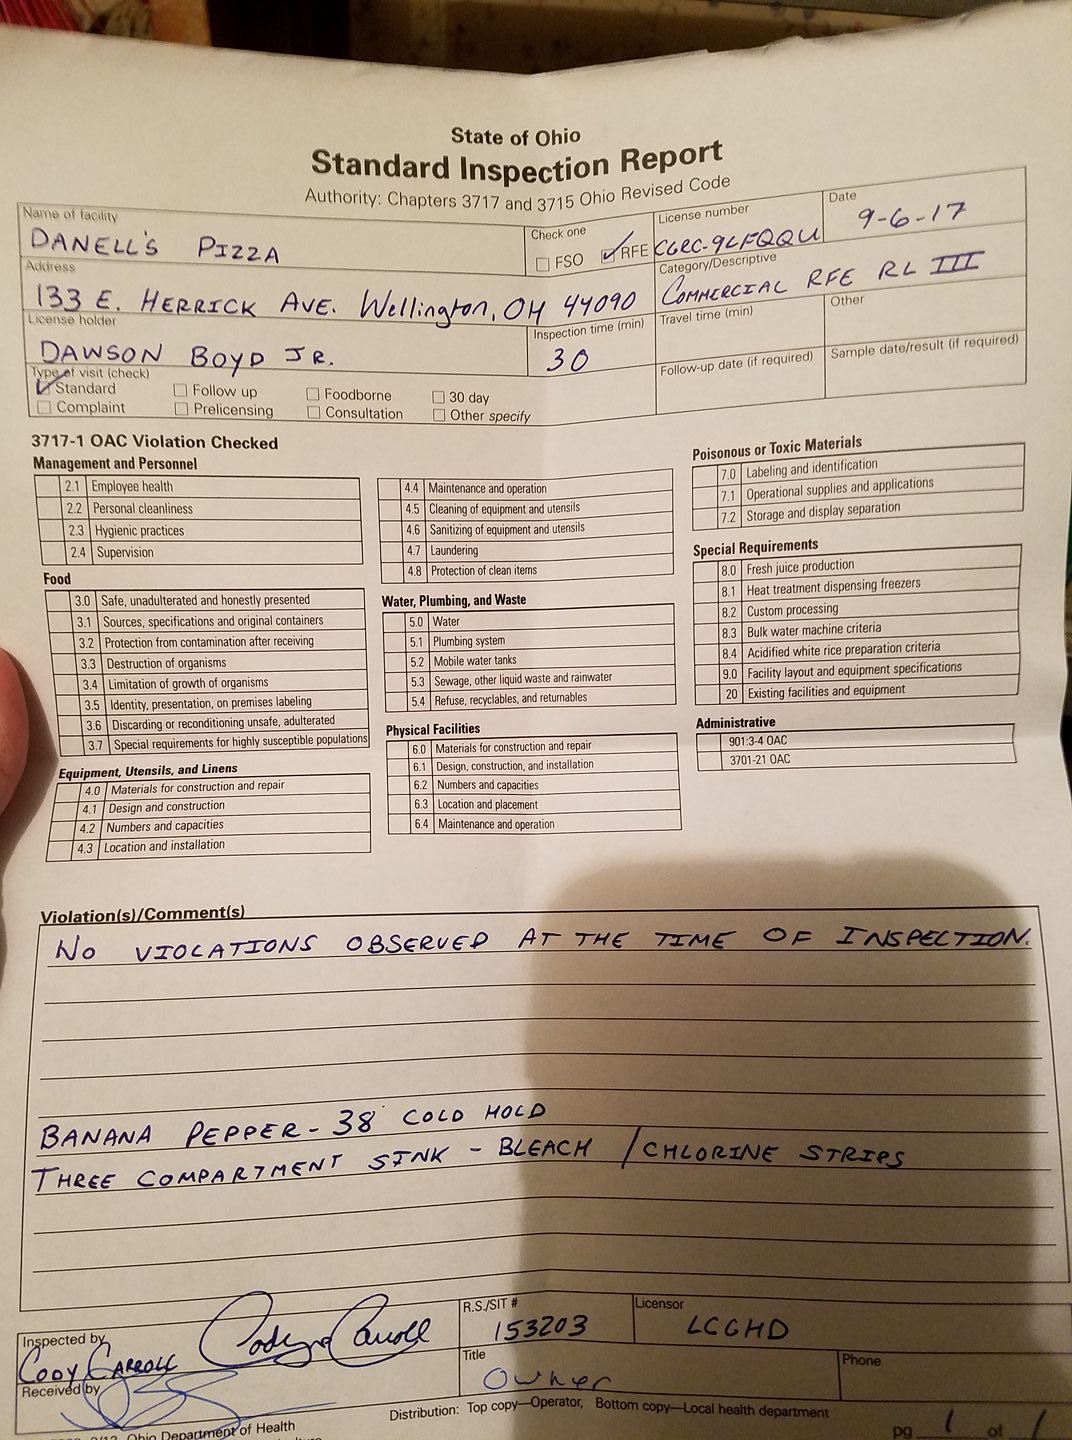 State of Ohio
Standard Inspection Report
Authority: Chapters 3717 and 3715 Ohio Revised Code
Name of facility
DANELL'S PIZZA
Check one
☐ FSO ☑ RFE
License number
CGRC-9LFQQU
Date
9-6-17
Address
133 E. HERRICK AVE. Wellington, OH 44090
Category/Descriptive
COMMERCIAL RFE RL III
License holder
DAWSON BOYD JR.
Inspection time (min)
30
Travel time (min)
Other
Type of visit (check)
☑ Standard ☐ Follow up ☐ Foodborne ☐ 30 day
☐ Complaint ☐ Prelicensing ☐ Consultation ☐ Other specify
Follow-up date (if required)
Sample date/result (if required)
3717-1 OAC Violation Checked
Management and Personnel
2.1 Employee health
2.2 Personal cleanliness
2.3 Hygienic practices
2.4 Supervision
Food
3.0 Safe, unadulterated and honestly presented
3.1 Sources, specifications and original containers
3.2 Protection from contamination after receiving
3.3 Destruction of organisms
3.4 Limitation of growth of organisms
3.5 Identity, presentation, on premises labeling
3.6 Discarding or reconditioning unsafe, adulterated
3.7 Special requirements for highly susceptible populations
Equipment, Utensils, and Linens
4.0 Materials for construction and repair
4.1 Design and construction
4.2 Numbers and capacities
4.3 Location and installation
4.4 Maintenance and operation
4.5 Cleaning of equipment and utensils
4.6 Sanitizing of equipment and utensils
4.7 Laundering
4.8 Protection of clean items
Water, Plumbing, and Waste
5.0 Water
5.1 Plumbing system
5.2 Mobile water tanks
5.3 Sewage, other liquid waste and rainwater
5.4 Refuse, recyclables, and returnables
Physical Facilities
6.0 Materials for construction and repair
6.1 Design, construction, and installation
6.2 Numbers and capacities
6.3 Location and placement
6.4 Maintenance and operation
Poisonous or Toxic Materials
7.0 Labeling and identification
7.1 Operational supplies and applications
7.2 Storage and display separation
Special Requirements
8.0 Fresh juice production
8.1 Heat treatment dispensing freezers
8.2 Custom processing
8.3 Bulk water machine criteria
8.4 Acidified white rice preparation criteria
9.0 Facility layout and equipment specifications
20 Existing facilities and equipment
Administrative
901:3-4 OAC
3701-21 OAC
Violation(s)/Comment(s)
NO VIOLATIONS OBSERVED AT THE TIME OF INSPECTION.
BANANA PEPPER - 38° COLD HOLD
THREE COMPARTMENT SINK - BLEACH / CHLORINE STRIPS
Inspected by
CODY CARROLL
R.S./SIT #
153203
Licensor
LCGHD
Received by
Title
Owner
Phone
Ohio Department of Health
Distribution: Top copy—Operator, Bottom copy—Local health department
pg 1 of 1